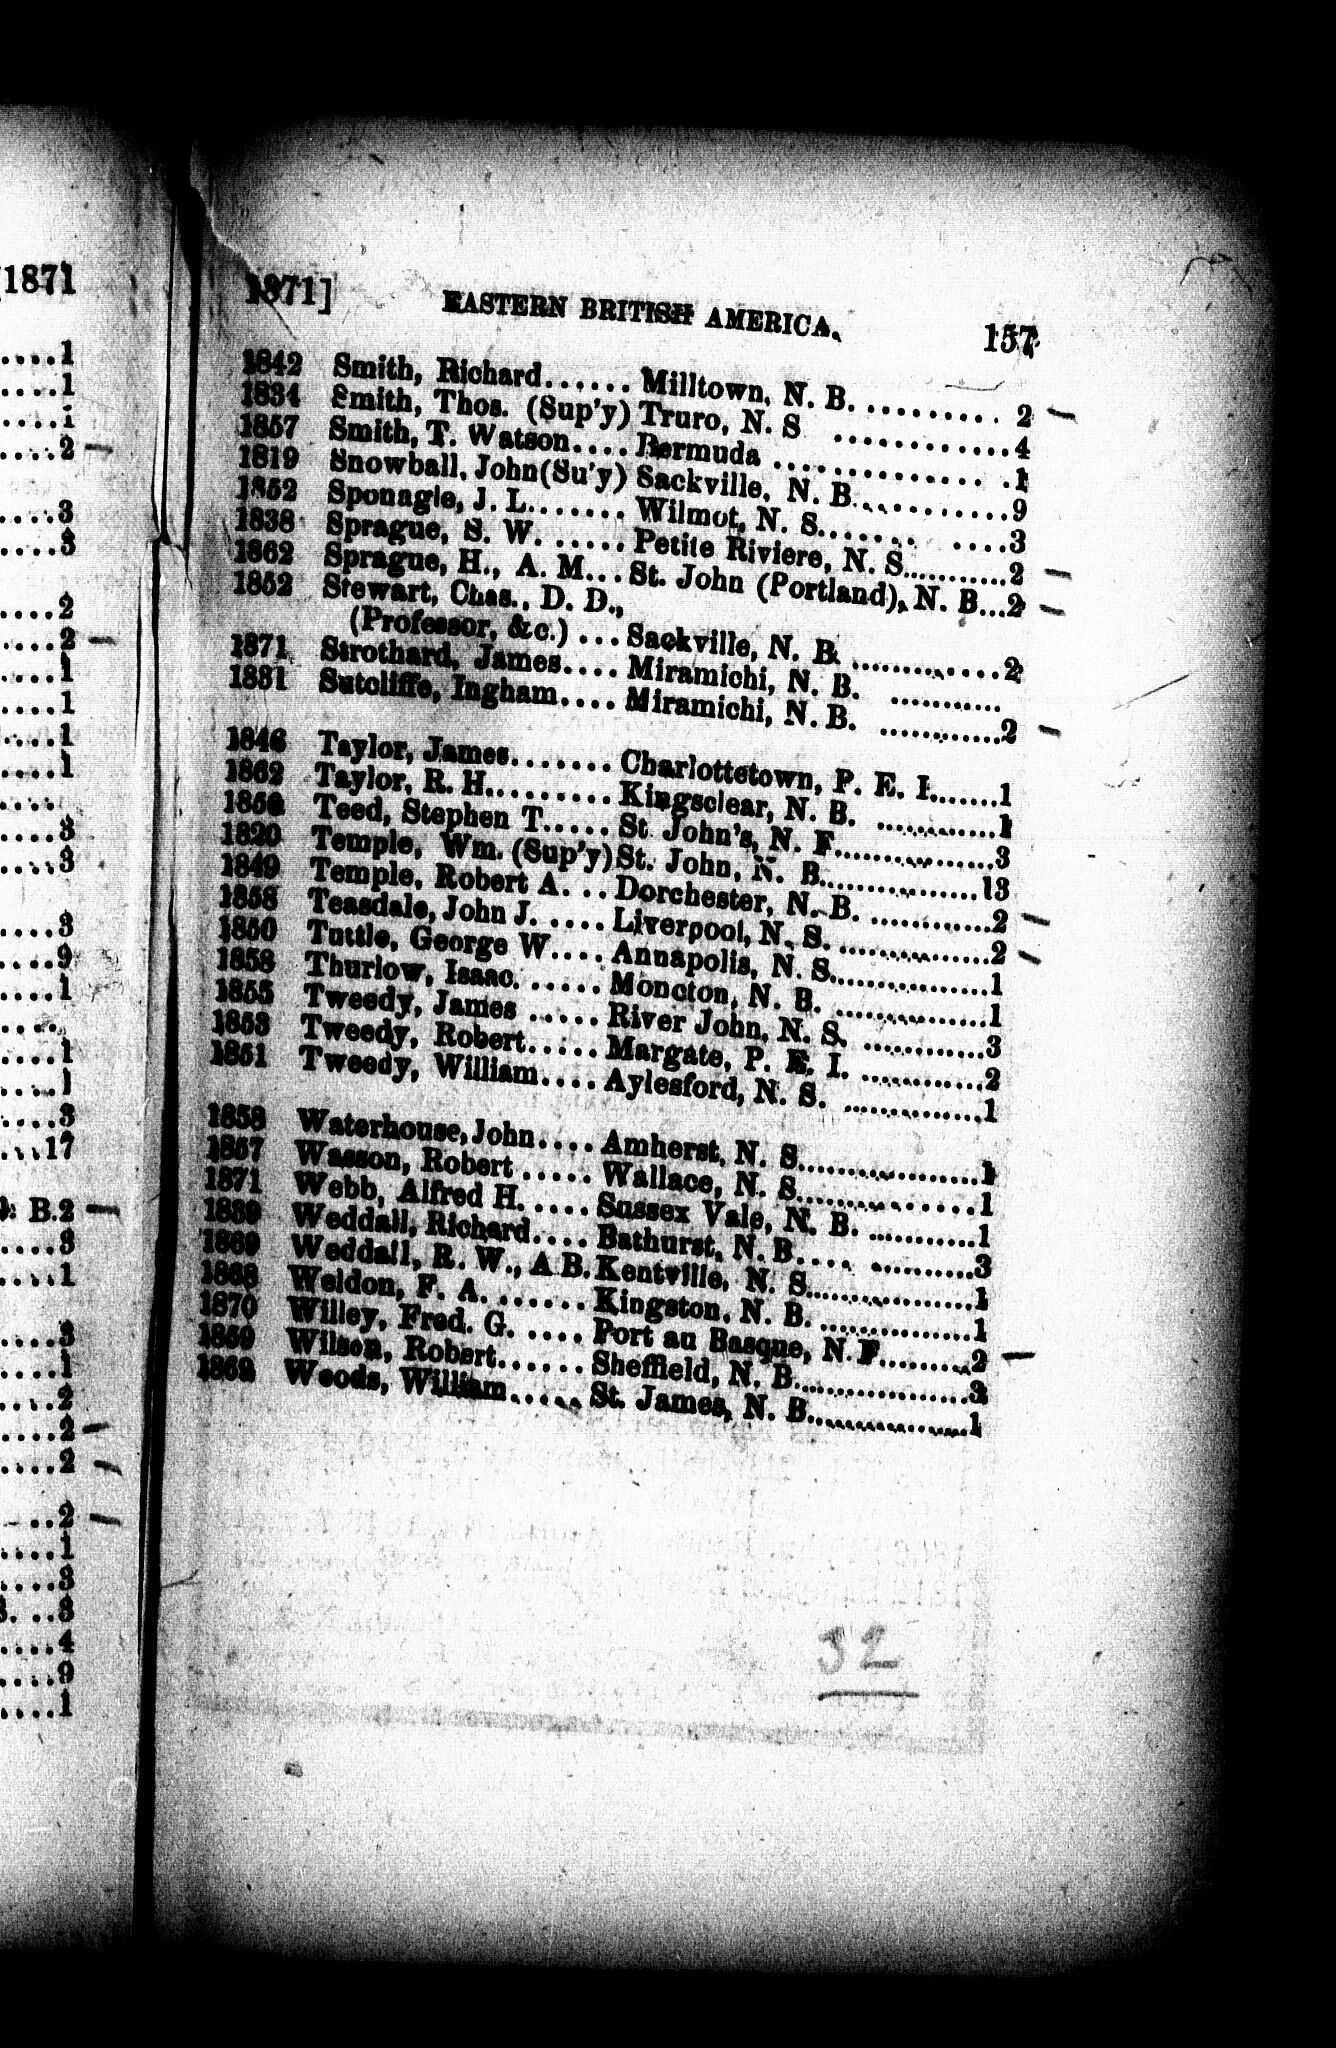 [1871
....1
....1
....1
....2
....3
....3
....2
....2
....1
....1
....1
....1
....
....3
....3
....3
....9
....1
....
....1
....1
....3
....17
B.2
....3
....1
....3
....1
....2
....2
....2
..2
....1
....3
..3
....4
....9
....1
1871] EASTERN BRITISH AMERICA. 157
1842 Smith, Richard...... Milltown, N. B. .......... 2
1834 Smith, Thos. (Sup'y) Truro, N. S ............4
1857 Smith, T. Watson.... Bermuda .............. .1
1819 Snowball, John(Su'y) Sackville, N. B............9
1852 Sponagle, J. L....... Wilmot, N. S....... ....3
1838 Sprague, S. W. ...... Petite Riviere, N. S...........2
1862 Sprague, H., A. M... St. John (Portland), N. B...2
1852 Stewart, Chas., D. D.,
(Professor, &c.) ... Sackville, N. B. ............2
1871 Strothard, James.... Miramichi, N. B. ...........
1831 Sutcliffe, Ingham.... Miramichi, N. B. ............2
1846 Taylor, James....... Charlottetown, P. E. I.......1
1862 Taylor, R. H......... Kingsclear, N. B. ............1
Teed, Stephen T..... St John's, N. F...............3
1820 Temple, Wm. (Sup'y) St. John, N. B..............13
1849 Temple, Robert A. ... Dorchester, N. B. ............2
1858 Teasdale, John J. .... Liverpool, N. S. ..............2
1850 Tuttle, George W.... Annapolis, N. S...............1
1858 Thurlow, Isaac. ..... Moncton, N. B. ..............1
1855 Tweedy, James ..... River John, N. S. ............3
1853 Tweedy, Robert..... Margate, P. E. I. ............2
1851 Tweedy, William.... Aylesford, N. S. .............1
1858 Waterhouse, John.... Amherst, N. S................1
1857 Wasson, Robert ..... Wallace, N. S................1
1871 Webb, Alfred H. .... Sussex Vale, N. B. ...........1
1839 Weddall, Richard.... Bathurst, N. B.... ..........3
1869 Weddall, R. W., A B. Kentville, N. S...............1
1868 Weldon, F. A. ...... Kingston, N. B. ..............1
1870 Willey, Fred. G. .... Port au Basque, N. F.........2
1859 Wilson, Robert...... Sheffield, N. B.................3
1862 Woods, William..... St. James, N. B...............1
32